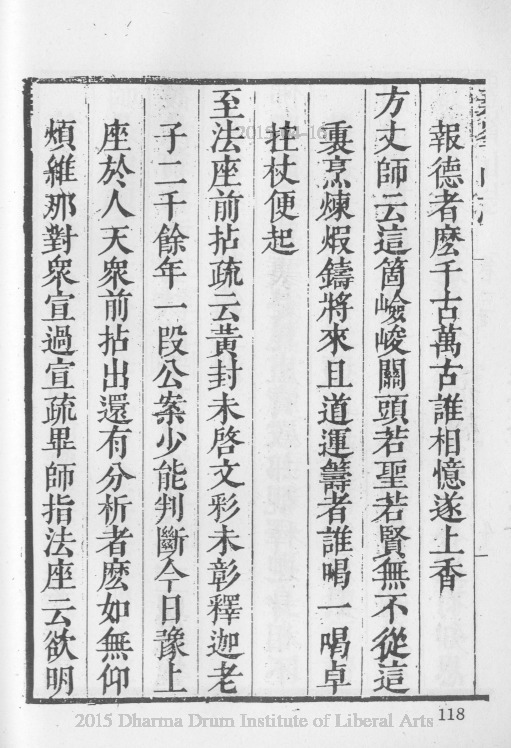 報德者麽千古萬古誰相憶遂上香
方丈師云這箇嶮峻關頭若聖若賢無不從這
裏烹煉煆鑄將來且道運籌者誰喝一喝卓
拄杖便起
至法座前拈疏云黃封未啓文彩未彰釋迦老
子二千餘年一段公案少能判斷今日豫上
座於人天衆前拈出還有分析者麽如無仰
煩維那對衆宣過宣疏畢師指法座云欲明
118
2015 Dharma Drum Institute of Liberal Arts